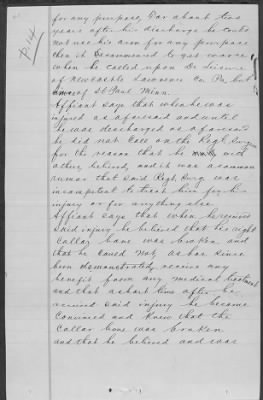 P. 14
for any purpose, For about two
years after his discharge he could
not use his arm for any purpose
then it commenced to get worse
when he called upon Dr
of Newcastle Lawrence Co. Pa, but
now of St Paul Minn.
Affiant says that when he was
injured as aforesaid and until
he was discharged as aforesaid
he did not call on the Regtl Surg
for the reason that he with
others believed and it was a common
rumor that said Regtl Surg was
incompetent to treat him for his
injury or for anything else
Affiant says that when he received
said injury he believed that his right
collar bone was broken and
that he could not, as has since
been demonstrated, receive any
benefit from any medical treatment
and that a short time after he
received said injury he became
convinced and knew that the
collar bone was broken
and that he believed and was